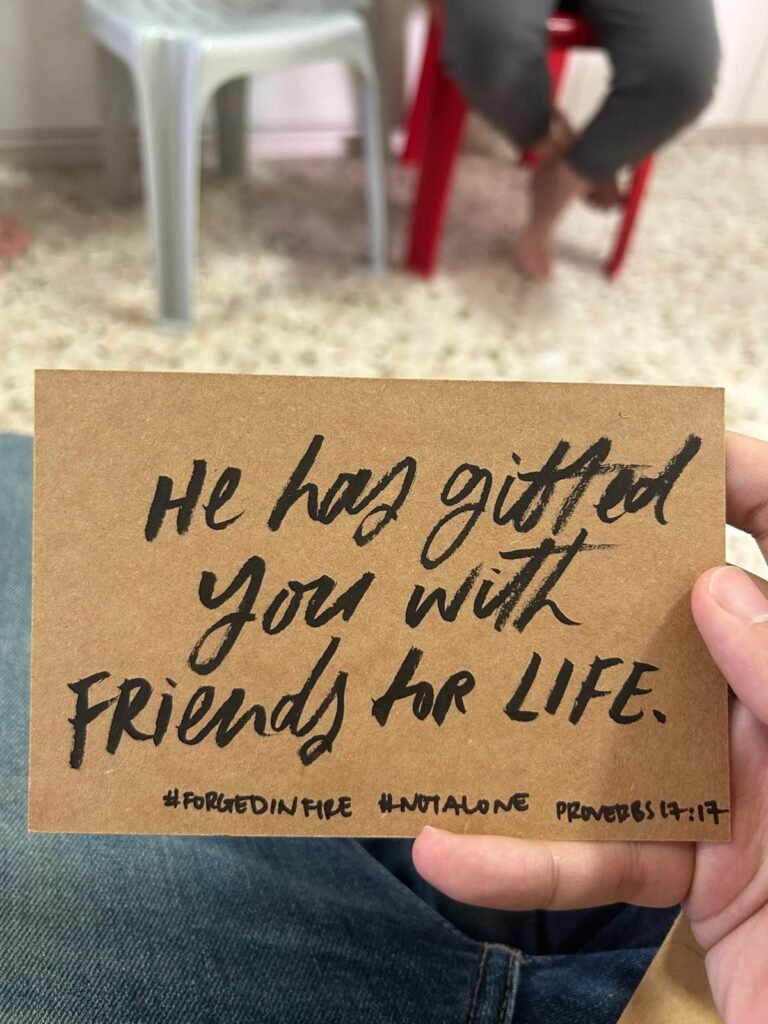 He has gifted
you with
FRiends for LIFE.
#FORGEDINFIRE #NOTALONE PROVERBS 17:17